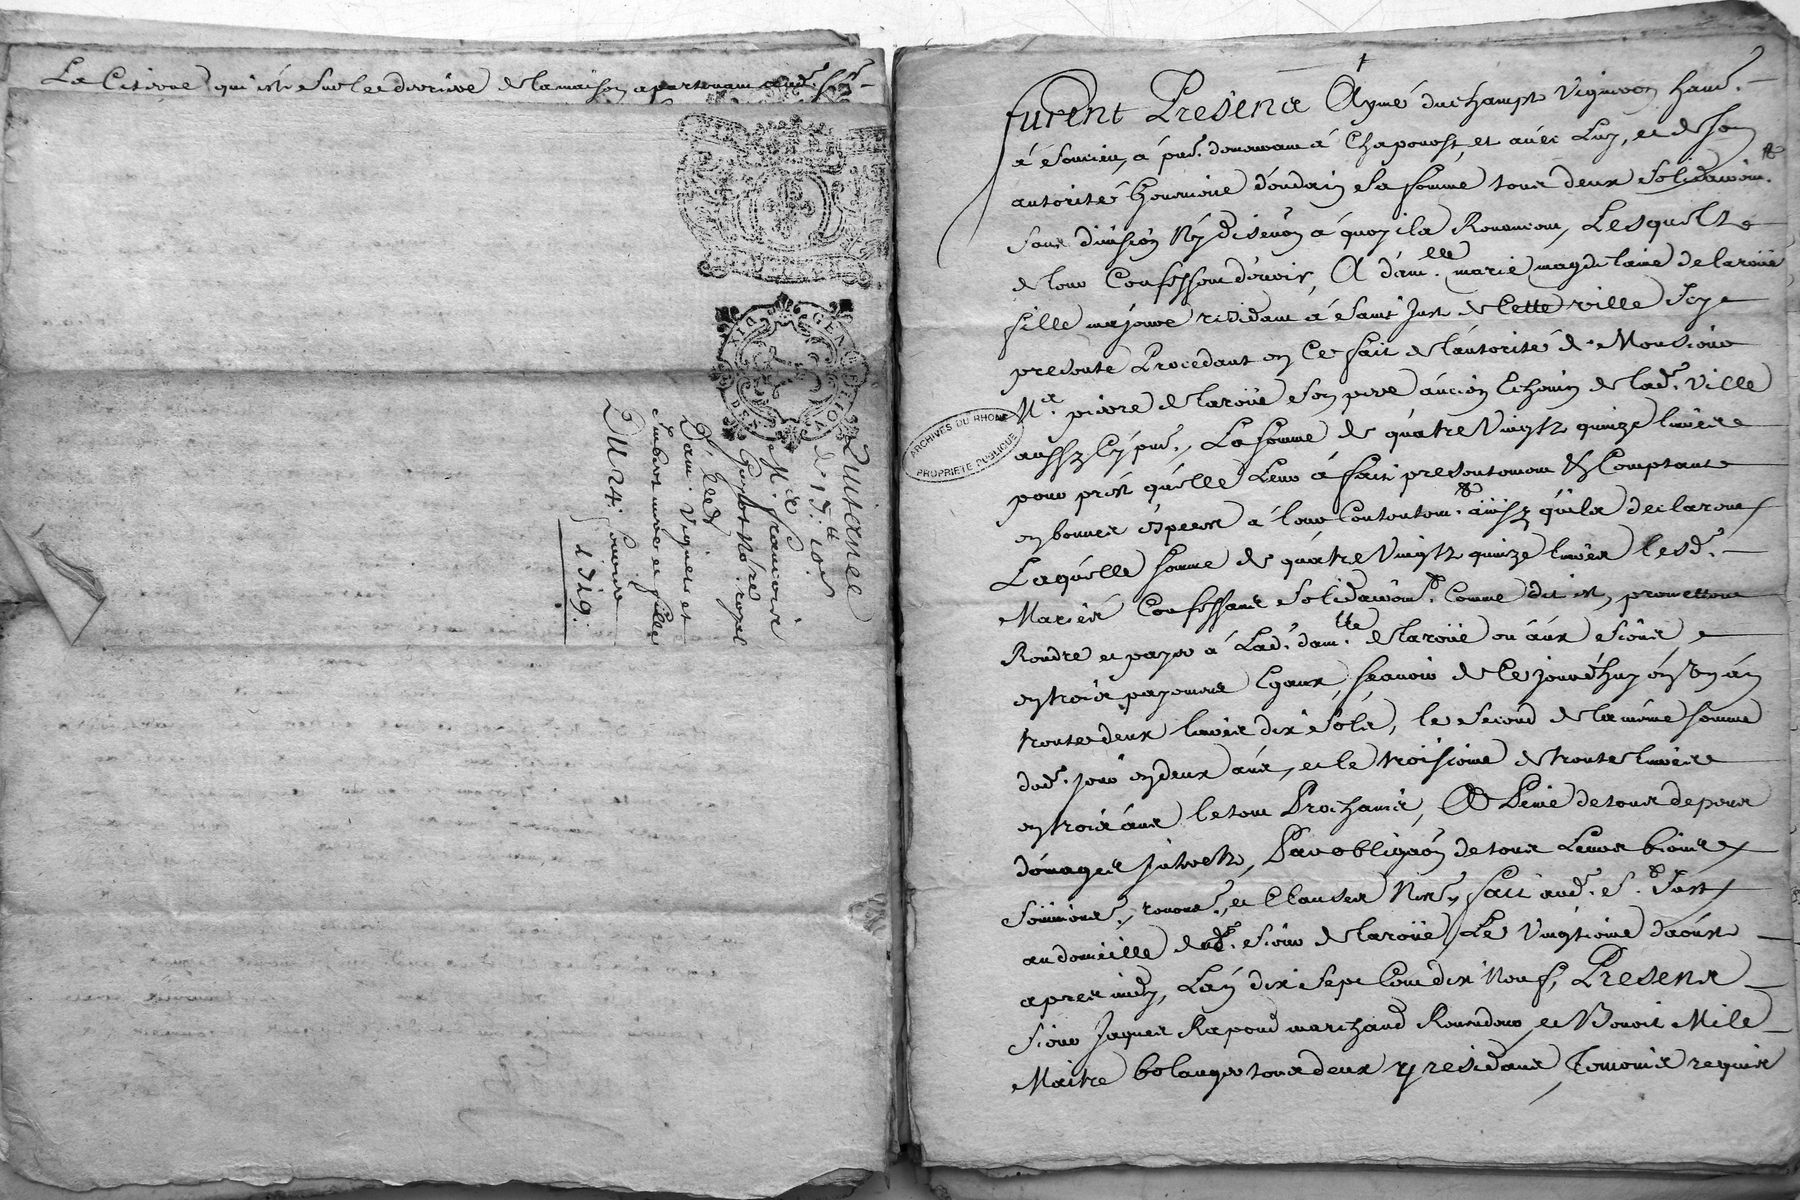 La Citerne qui est sur le derriere de la maison apartenant aud. sr.
GENERALITE DE LYON
DIX DEN
Quitance
de 15. ll 10 s.
Mre francois
Guyot No.re royal
A
Dam. Viguet et
Imbert mere et fille
Du 24. 
1719.
ARCHIVES DU RHONE
PROPRIETE PUBLIQUE
furent Presens Aymé duchampt Vigneron hant.
à Soucieu, à pnt. demeurant à Chaponost, et avec Luy, et de son
autorité Oudrin sa femme tous deux solidairem.t
sans division Ny discution à quoy ils Renoncent, Lesquels
de leur Confessent devoir, A dam.lle marie magdelaine de la roüe
fille majeure residant à Saint Just de Cette ville Icy
presente Procedant en Ce fait de l'autorité de Monsieur
Me. pierre de la roüe son pere ancien Echevin de lad. Ville
aussy Cy pnt., La somme de quatre Vingtz quinze livres
pour prest quelle Leur à fait presentement et Comptant
en bonnes especes à leur Contentem.t ainsy quils declarent
Laquelle somme de quatre Vingtz quinze livres lesd.
Mariés Confessans solidairem.t Comme dit est, promettent
Rendre et payer à Lad. dam.lle de la roüe ou aux siens
en trois payemens Egaux, sçavoir de Ce jourdhuy en Un an
trente deux livres dix sols, le second de la même somme
dud. jour en deux ans, et le troisieme de trente livres
en trois ans le tout Prochains, A Peine de tous depens
domages intretz, Par obligaôn de tous Leurs biens
soumions., renons., et Clauses Nres., fait aud. St. Just
au domicille dud. sieur de la roüe Le Vingtieme d'aoust
apres midy, L'an dix sept Cent dix Neuf, Presens
sieur Jaques Rapoud marchand et Benoit Mile
Maitre bolanger tous deux y residans Temoins requis